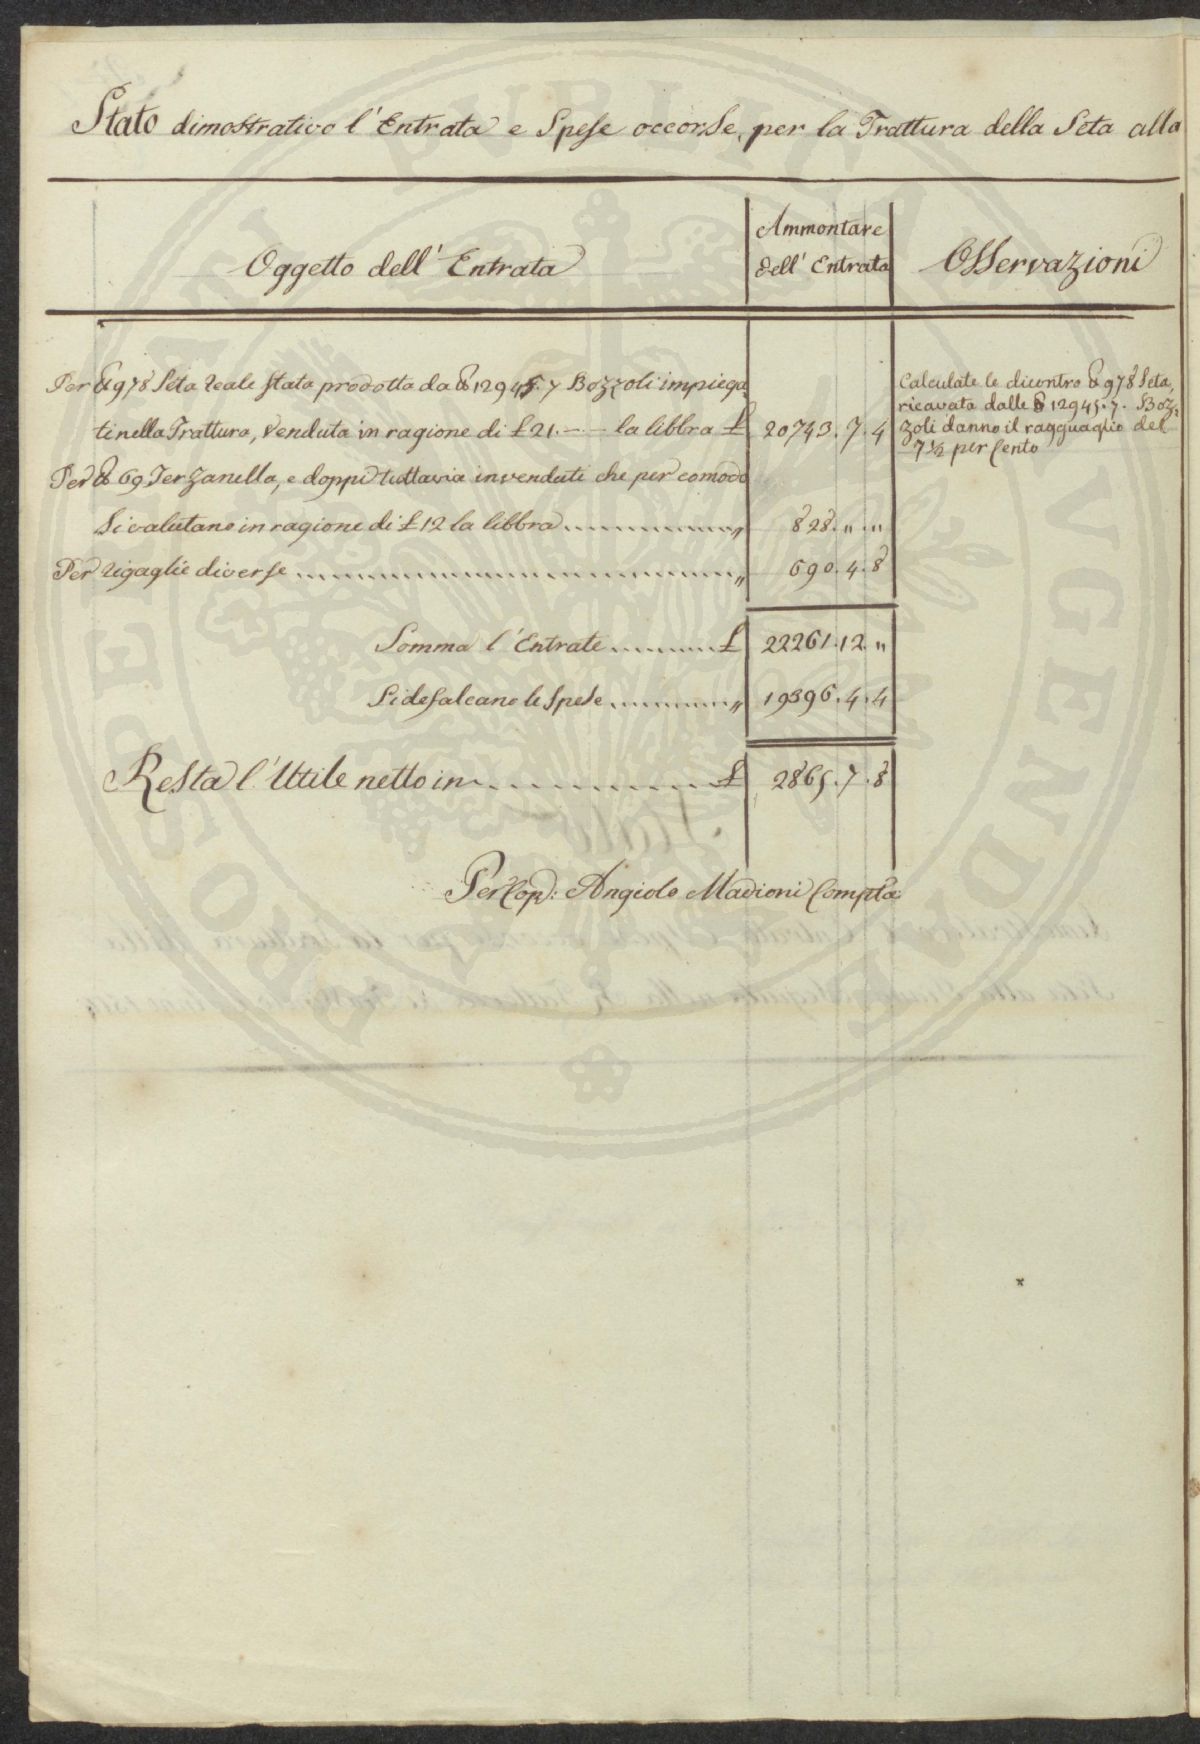 Stato dimostrativo l'Entrata e Spese occorse, per la Trattura della Seta alla
Oggetto dell'Entrata
Ammontare
dell'Entrata
Osservazioni
Per ℔ 978 Seta reale stata prodotta da ℔ 12945.7 Bozzoli impiega
ti nella Trattura, venduta in ragione di £ 21.-- la libbra £ 20743.7.4
Per ℔ 69 Terzanella, e doppi tuttavia invenduti che per comodo
Si valutano in ragione di £ 12 la libbra ........ „ 828.„.„
Per rigaglie diverse ........ „ 690.4.8
Calculate le dicontro ℔ 978 Seta,
ricavata dalle ℔ 12945.7. Boz=
zoli danno il ragguaglio del
7½ per Cento
Somma l'Entrate ........ £ 22261.12.„
Si defalcano le Spese ........ „ 19396.4.4
Resta l'Utile netto in ........ £ 2865.7.8
Per Cop: Angiolo Madioni Compta
PUBLICAE
EVGENDAE
PROSPERITATI